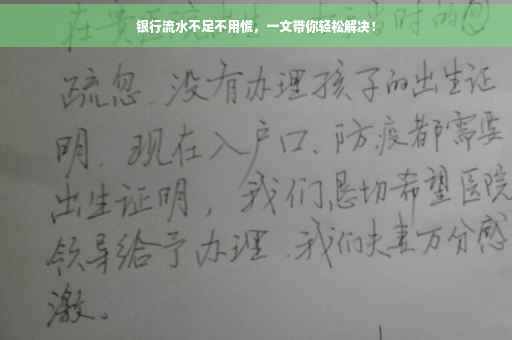 银行流水不足不用慌，一文带你轻松解决！
疏忽.没有办理孩子的出生证
明.现在入户口、防疫都需要
出生证明，我们恳切希望医院
领导给予办理.我们夫妻万分感
激。